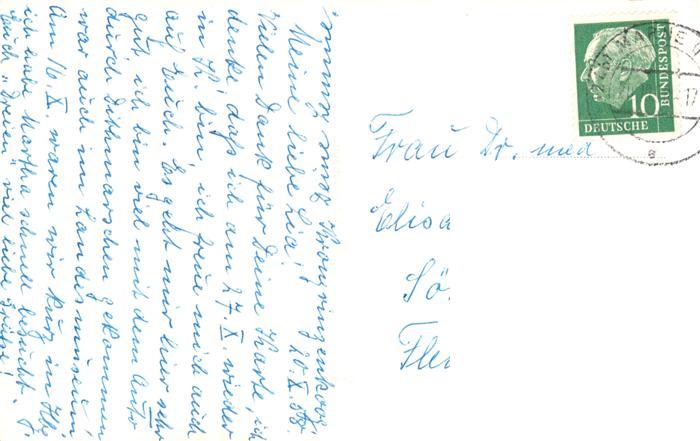 Kronprinzenkoog,
20.X.58.
Meine liebe Lia!
Vielen Dank für Deine Karte, ich
denke, daß ich am 27.X. wieder
in K. bin, ich freue mich auch
auf Euch. Es geht mir hier sehr
gut, ich bin viel mit dem Auto
durch Dithmarschen gekommen
war auch im Landesmuseum
Am 16.X. waren wir kurz in
ich habe Martha schnell besucht.
Euch "Dreien" viel liebe Grüße!
10
DEUTSCHE
BUNDESPOST
MARNE
17
a
Frau Dr. med
Elisa
Sö
Fle